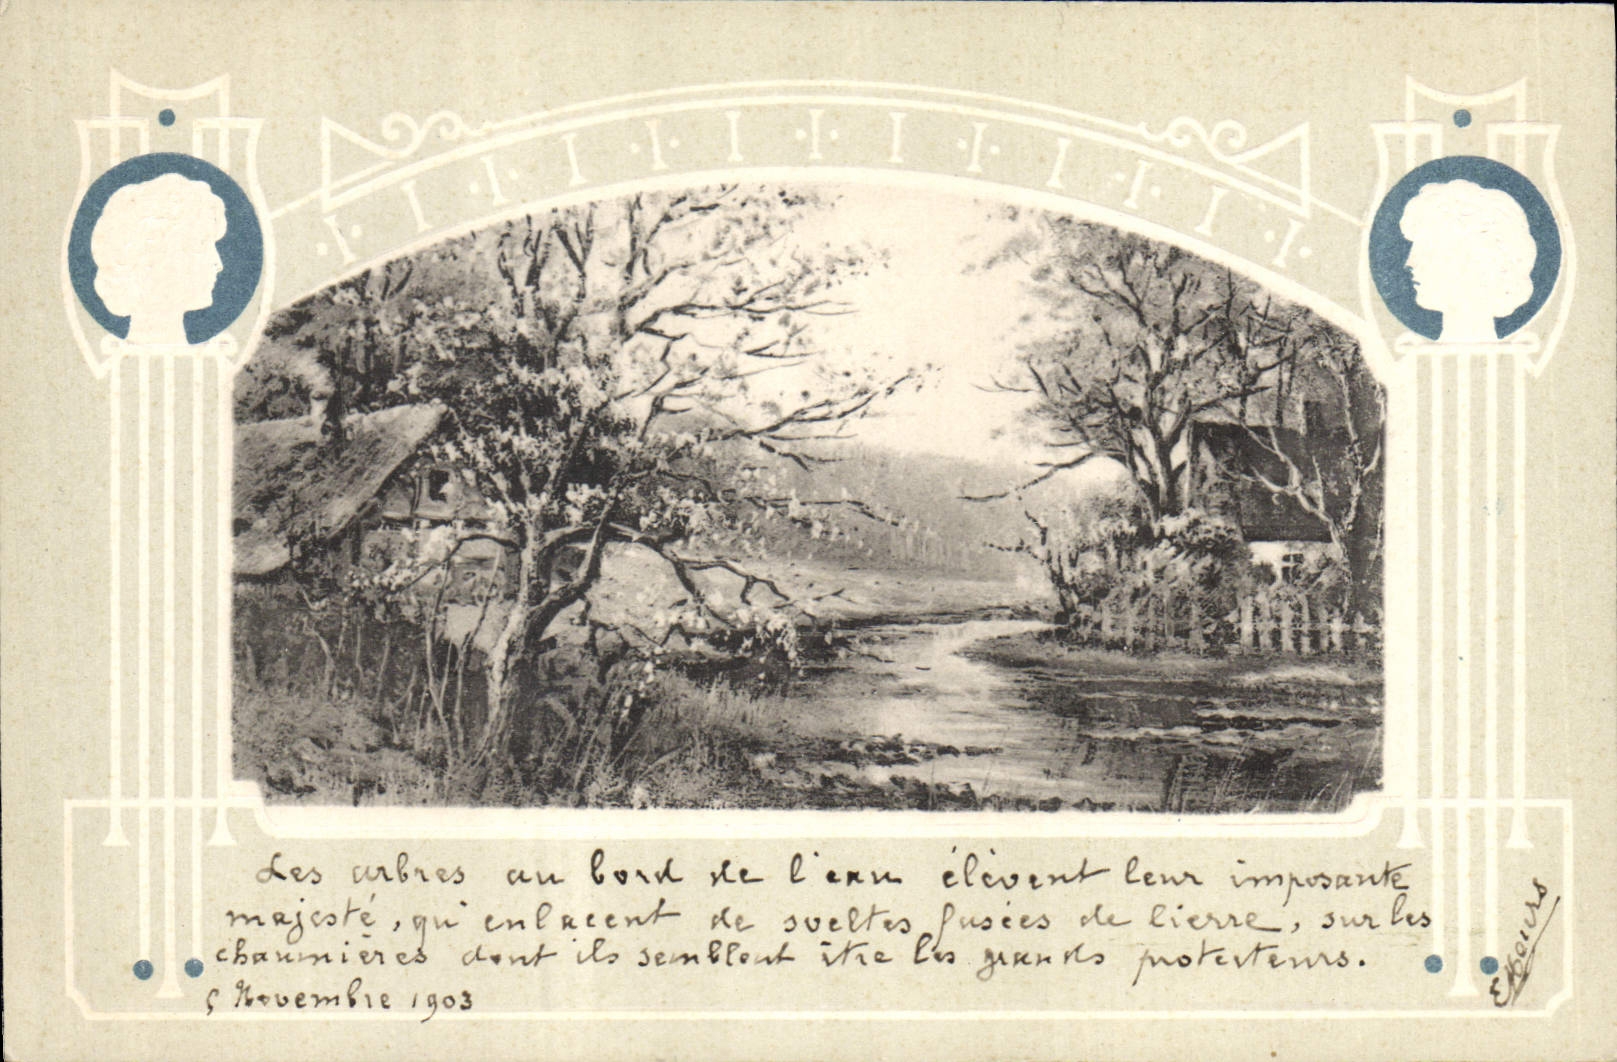 Les arbres au bord de l'eau élèvent leur imposante
majesté, qu'enlacent de sveltes fusées de lierre, sur les
chaumières dont ils semblent être les grands protecteurs.
5 Novembre 1903